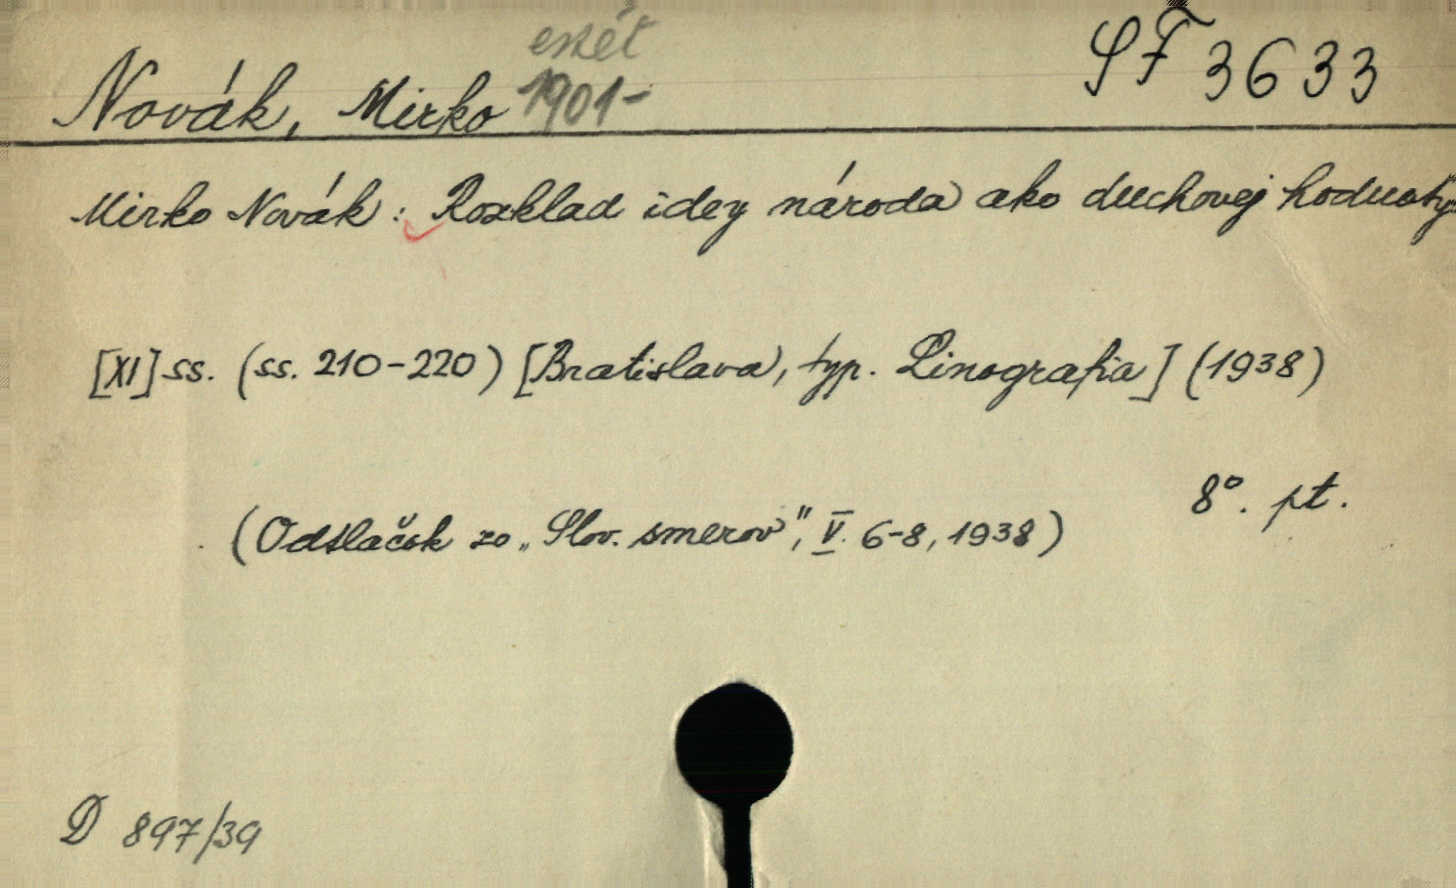 estét
SF 3633
Novák, Mirko 1901-
Mirko Novák: Rozklad idey národa ako duchovej hodnoty
[XI] ss. (ss. 210-220) [Bratislava, typ. Linografia] (1938)
8°. pt.
(Odtlačok zo „Slov. smerov", V. 6-8, 1938)
D 897/39